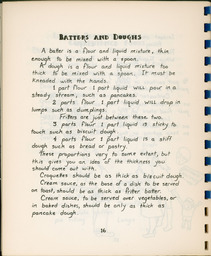 BATTERS AND DOUGHS
A batter is a flour and liquid mixture, thin
enough to be mixed with a spoon.
A dough is a flour and liquid mixture too
thick to be mixed with a spoon. It must be
kneaded with the hands.
1 part flour 1 part liquid will pour in a
steady stream, such as pancakes.
2 parts flour 1 part liquid will drop in
lumps such as dumplings.
Fritters are just between these two.
3 parts flour 1 part liquid is sticky to
touch such as biscuit dough.
4 parts flour 1 part liquid is a stiff
dough such as bread or pastry.
These proportions vary to some extent, but
this gives you an idea of the thickness you
should come out with.
Croquettes should be as thick as biscuit dough.
Cream sauce, as the base of a dish to be served
on toast, should be as thick as fritter batter.
Cream sauce, to be served over vegetables, or
in baked dishes, should be only as thick as
pancake dough.
16